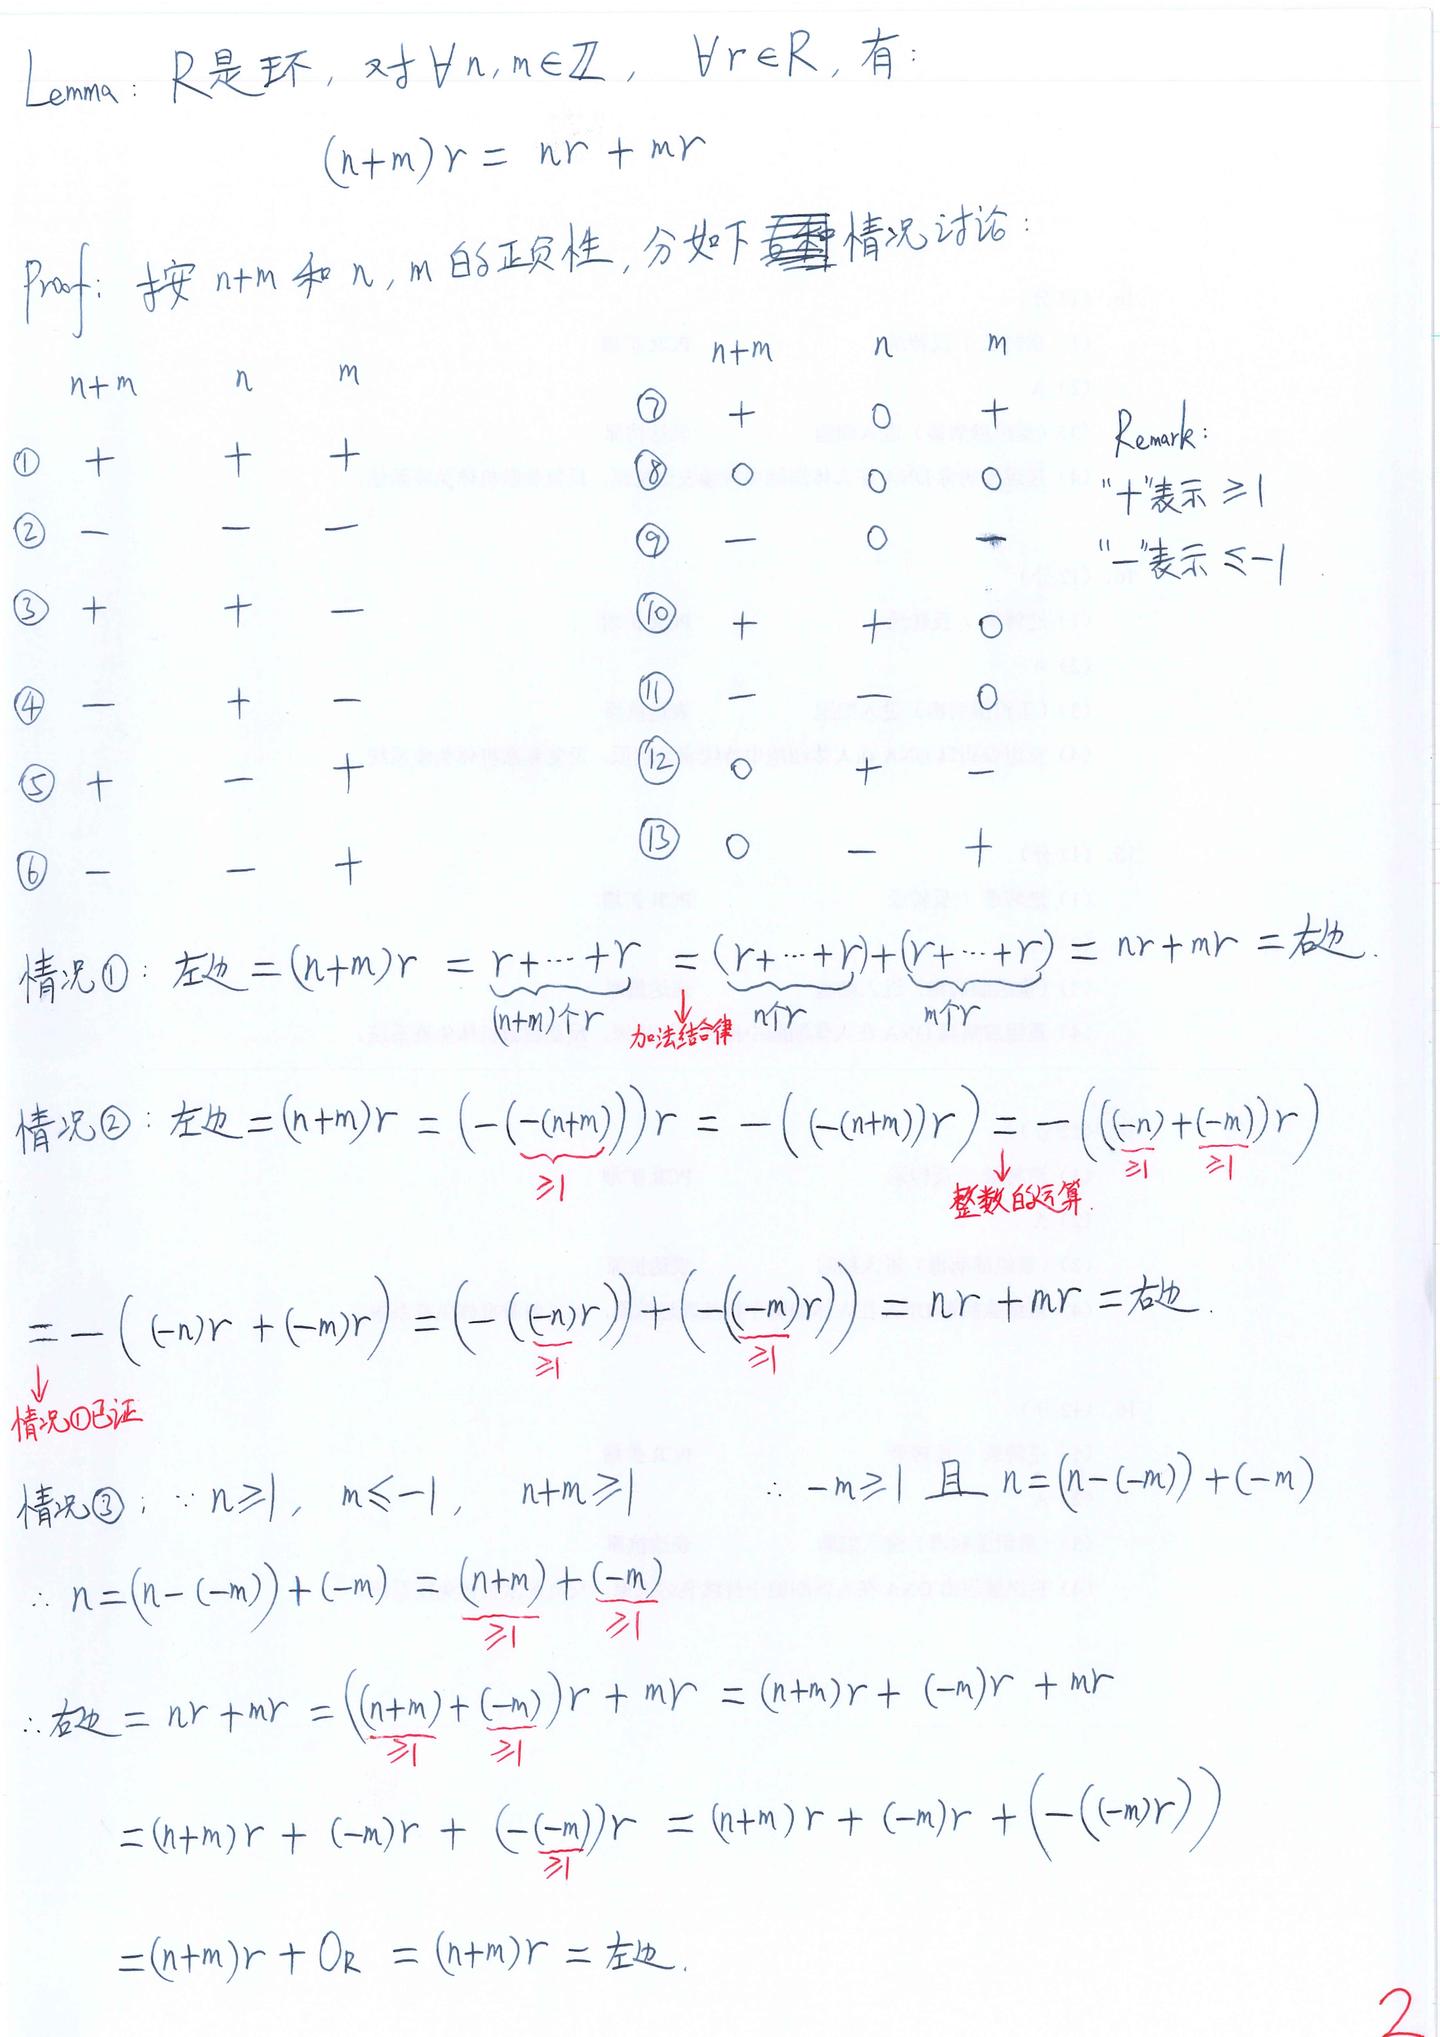 Lemma: R是环, 对∀n,m∈ℤ, ∀r∈R, 有:
(n+m)r = nr + mr
Proof: 按 n+m 和 n, m 的正负性, 分如下情况讨论:
n+m n m
① + + +
② − − −
③ + + −
④ − + −
⑤ + − +
⑥ − − +
n+m n m
⑦ + 0 +
⑧ 0 0 0
⑨ − 0 −
⑩ + + 0
⑪ − − 0
⑫ 0 + −
⑬ 0 − +
Remark:
"+"表示 ≥1
"−"表示 ≤−1
情况①: 左边 = (n+m)r = r+⋯+r = (r+⋯+r)+(r+⋯+r) = nr+mr = 右边.
(n+m)个r 加法结合律 n个r m个r
情况②: 左边 = (n+m)r = (−(−(n+m)))r = −((−(n+m))r) = −(((−n)+(−m))r)
≥1 整数的运算. ≥1 ≥1
= −((−n)r + (−m)r) = (−((−n)r)) + (−((−m)r)) = nr + mr = 右边.
≥1 ≥1
情况①已证
情况③: ∵ n≥1, m≤−1, n+m≥1 ∴ −m≥1 且 n=(n−(−m))+(−m)
∴ n=(n−(−m))+(−m) = (n+m)+(−m)
≥1 ≥1
∴ 右边 = nr + mr = ((n+m)+(−m))r + mr = (n+m)r + (−m)r + mr
≥1 ≥1
= (n+m)r + (−m)r + (−(−m))r = (n+m)r + (−m)r + (−((−m)r))
≥1
= (n+m)r + 0_R = (n+m)r = 左边.
2